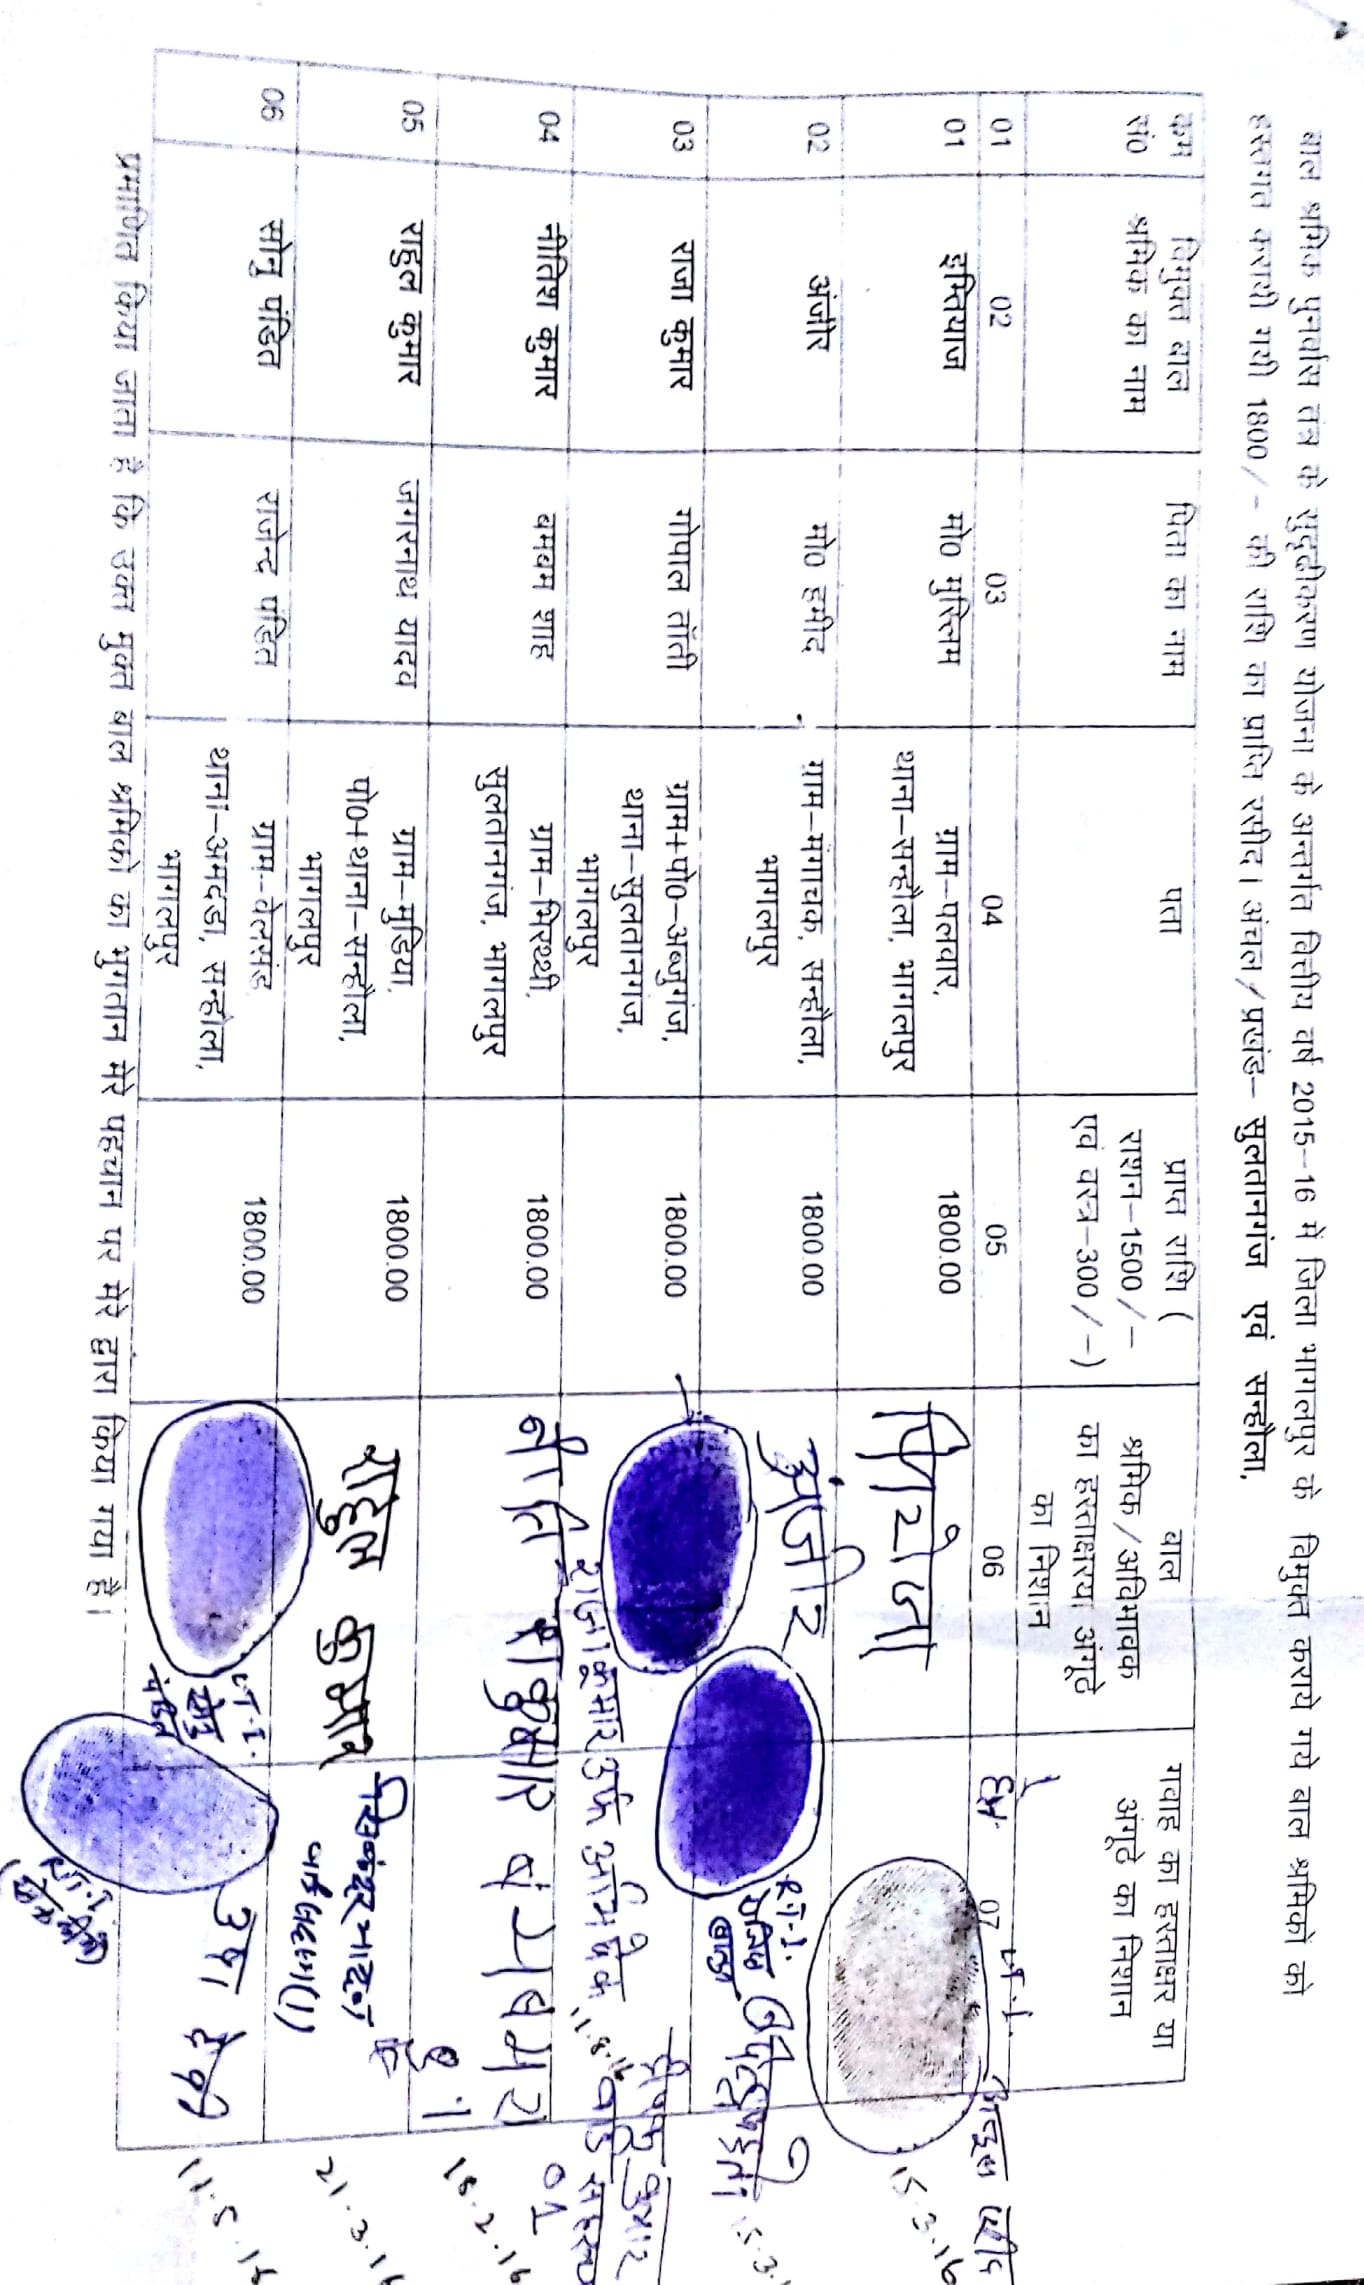 बाल श्रमिक पुनर्वास तंत्र के सुदृढीकरण योजना के अन्तर्गत वित्तीय वर्ष 2015–16 में जिला भागलपुर के विमुक्त कराये गये बाल श्रमिकों को
हस्तगत करायी गयी 1800/- की राशि का प्राप्ति रसीद। अंचल/प्रखंड– सुलतानगंज एवं सन्हौला,
कम सं0 विमुक्त बाल श्रमिक का नाम पिता का नाम पता प्राप्त राशि ( राशन–1500/– एवं वस्त्र–300/–) बाल श्रमिक/अविभावक का हस्ताक्षरया अंगूठे का निशान गवाह का हस्ताक्षर या अंगूठे का निशान
01 02 03 04 05 06 07
01 इम्तियाज मो0 मुस्लिम ग्राम–पलवार, थाना–सन्हौला, भागलपुर 1800.00 L.T.I. 15.3.16
02 अंजीर मो0 हमीद ग्राम–मंगाचक, सन्हौला, भागलपुर 1800.00 अंजीर
03 राजा कुमार गोपाल तांती ग्राम+पो0–अब्जुगंज, थाना–सुलतानगंज, भागलपुर 1800.00 राजा कुमार उर्फ अभिषेक
04 नीतिश कुमार बमबम शाह ग्राम–मिरश्शी, सुलतानगंज, भागलपुर 1800.00 नीतिश कुमार
05 राहुल कुमार जगरनाथ यादव ग्राम–मुड़िया, पो0+थाना–सन्हौला, भागलपुर 1800.00 राहुल कुमार
06 सोनु पंडित राजेन्द पंडित ग्राम–वेलसंड, थाना–अमदंडा, सन्हौला, भागलपुर 1800.00 L.T.I. सोनु पंडित उषा देवी
प्रमाणित किया जाता है कि उक्त मुक्त बाल श्रमिकों का भुगतान मेरे पहचान पर मेरे द्वारा किया गया है।